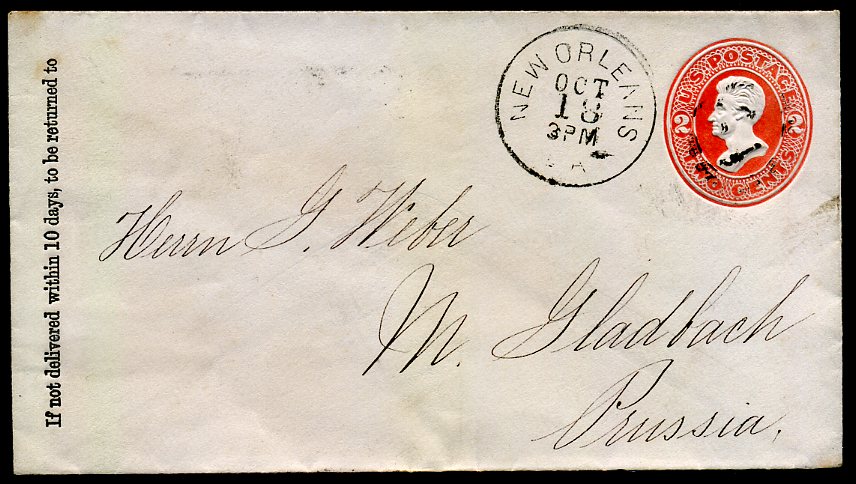 If not delivered within 10 days, to be returned to
NEW ORLEANS
OCT
18
3PM
LA
U.S. POSTAGE
2 2
TWO CENTS
Herrn G. Weber
M. Gladbach
Prussia.